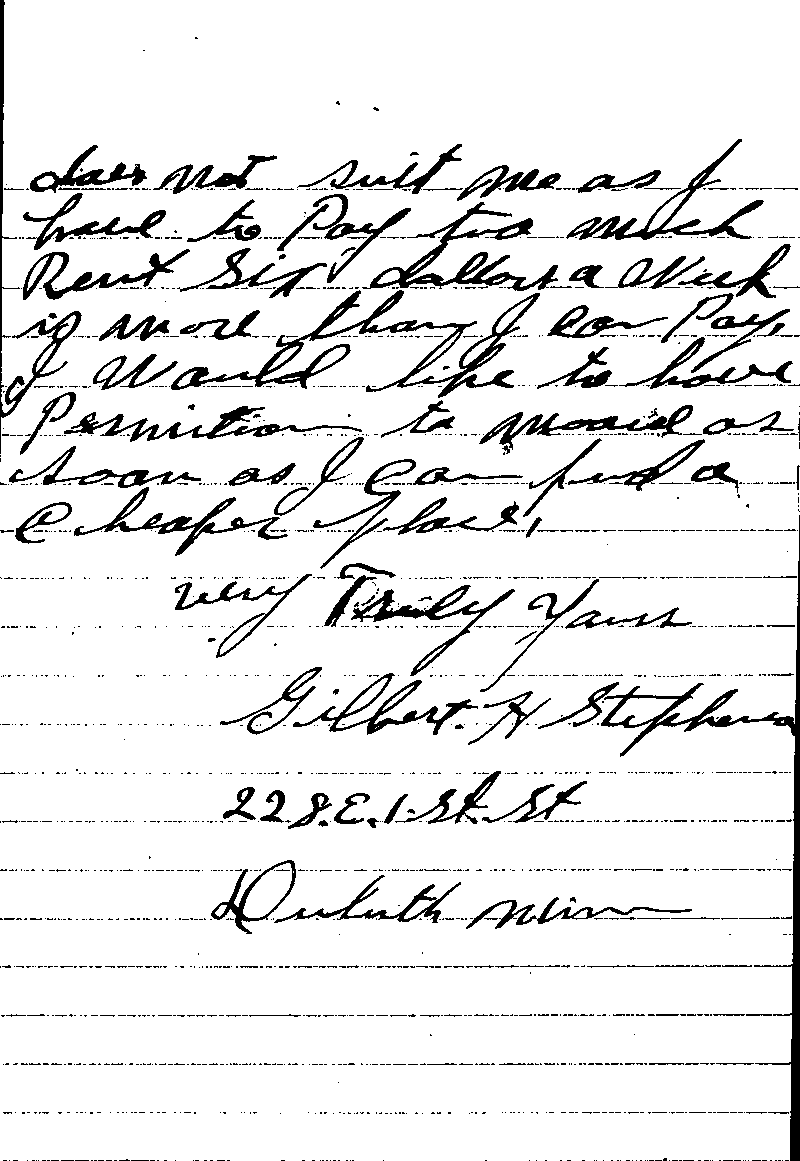 does not suit me as I
have to Pay too much
Rent Six dollars a Week
is more than I can Pay.
I Would like to have
Permition to moove as
soon as I can find a
Cheaper place.
very Truly Yours
Gilbert. H Stephenson
228.E.1.St.St
Duluth Minn